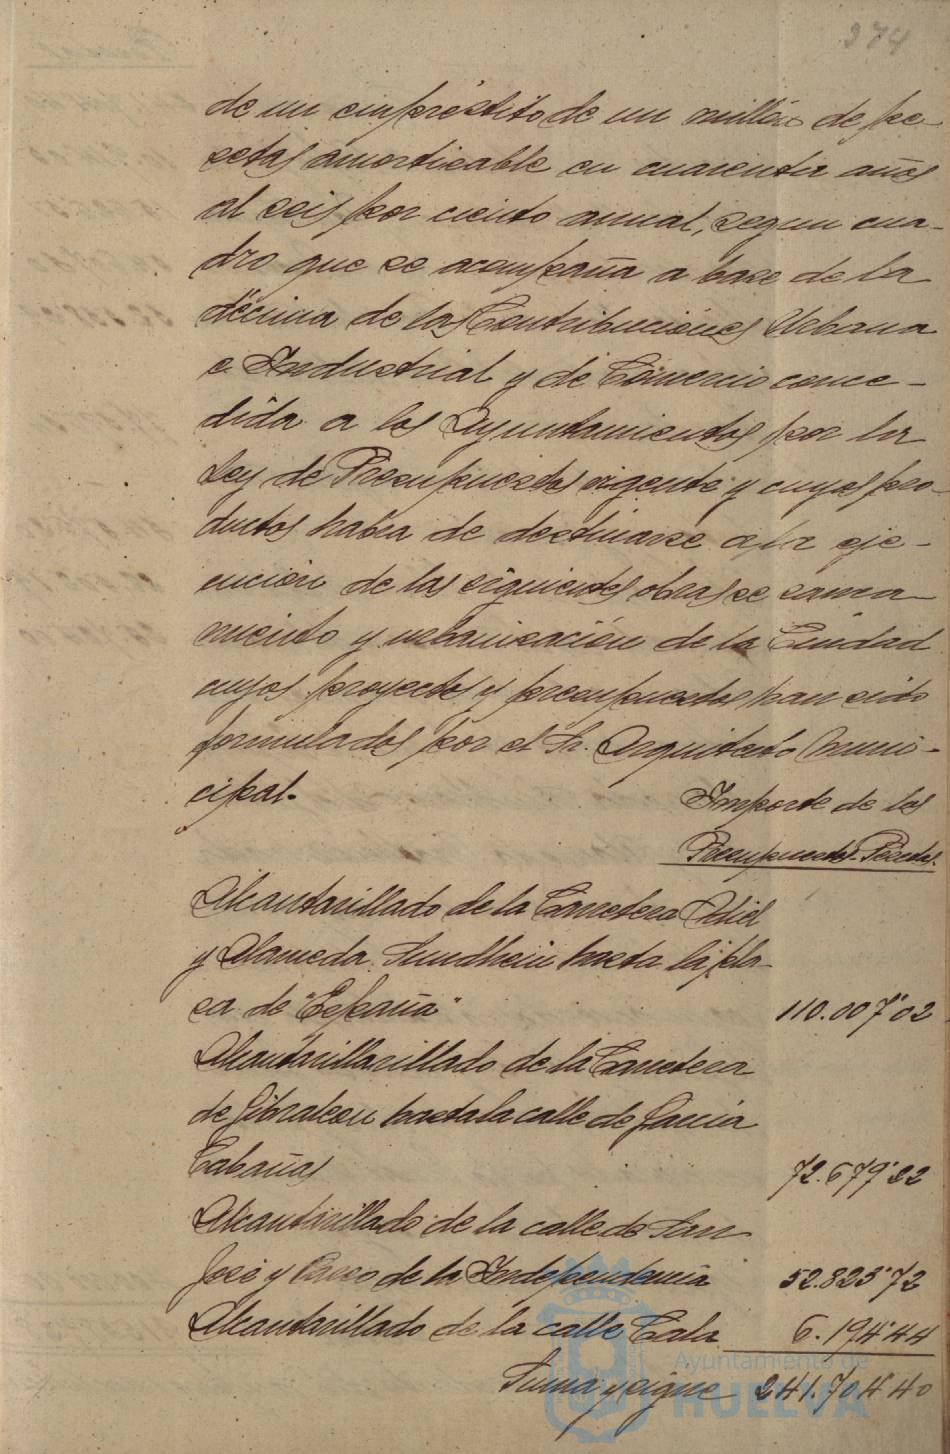 374
de un empréstito de un millón de pe-
setas amortizable en cuarenta años
al seis por ciento anual, segun cua-
dro que se acompaña a base de la
décima de las Contribuciones Urbana
e Industrial y de Comercio conce-
dida a los Ayuntamientos por la
Ley de Presupuestos vigente y cuyos pro-
ductos habia de destinarse a la eje-
cución de las siguientes obras de sanea
miento y urbanización de la Ciudad
cuyos proyectos y presupuestos han sido
formulados por el Sr. Arquitecto Muni-
cipal.
Importe de los
Presupuestos Pesetas.
Alcantarillado de la Carretera Odiel
y Alameda Sundhein hasta la pla-
za de "España" 110.007'02
Alcantarillarillado de la Carretera
de Gibraleon hasta la calle de Garcia
Cabañas 72.679'22
Alcantarillado de la calle de San
José y Paseo de la Independencia 52.823'72
Alcantarillado de la calle Cala 6.194'44
Suma y sigue 241.704'40
Ayuntamiento de
HUELVA